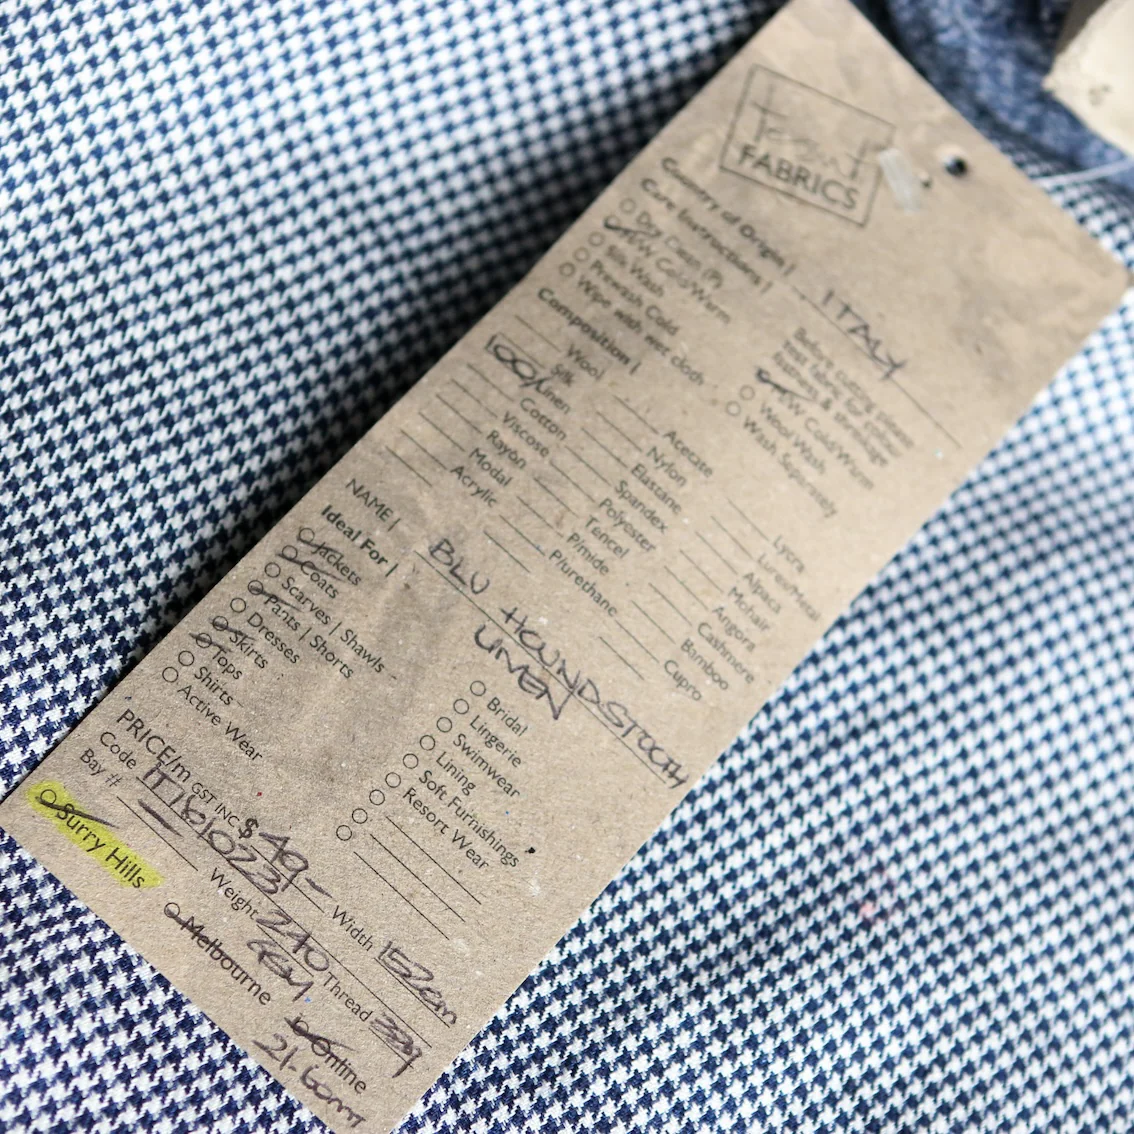 FABRICS
Country of Origin | ITALY
Care Instructions |
Dry Clean (P)
H/W Cold/Warm
Silk Wash
Prewash Cold
Wipe with wet cloth
Before cutting please
test fabric for colour
fastness & shrinkage
M/W Cold/Warm
Wool Wash
Wash Separately
Composition |
Wool
Silk
100% Linen
Cotton
Viscose
Rayon
Modal
Acrylic
Acetate
Nylon
Elastane
Spandex
Polyester
Tencel
P/mide
P/urethane
Lycra
Lurex/Metal
Alpaca
Mohair
Angora
Cashmere
Bamboo
Cupro
NAME | BLU HOUNDSTOOTH
LINEN
Ideal For |
Jackets
Coats
Scarves | Shawls
Pants | Shorts
Dresses
Skirts
Tops
Shirts
Active Wear
Bridal
Lingerie
Swimwear
Lining
Soft Furnishings
Resort Wear
PRICE/m GST INC $ 49- Width 152cm
Code IT161023 Weight 240 Thread
Bay #
Surry Hills
Melbourne
Online